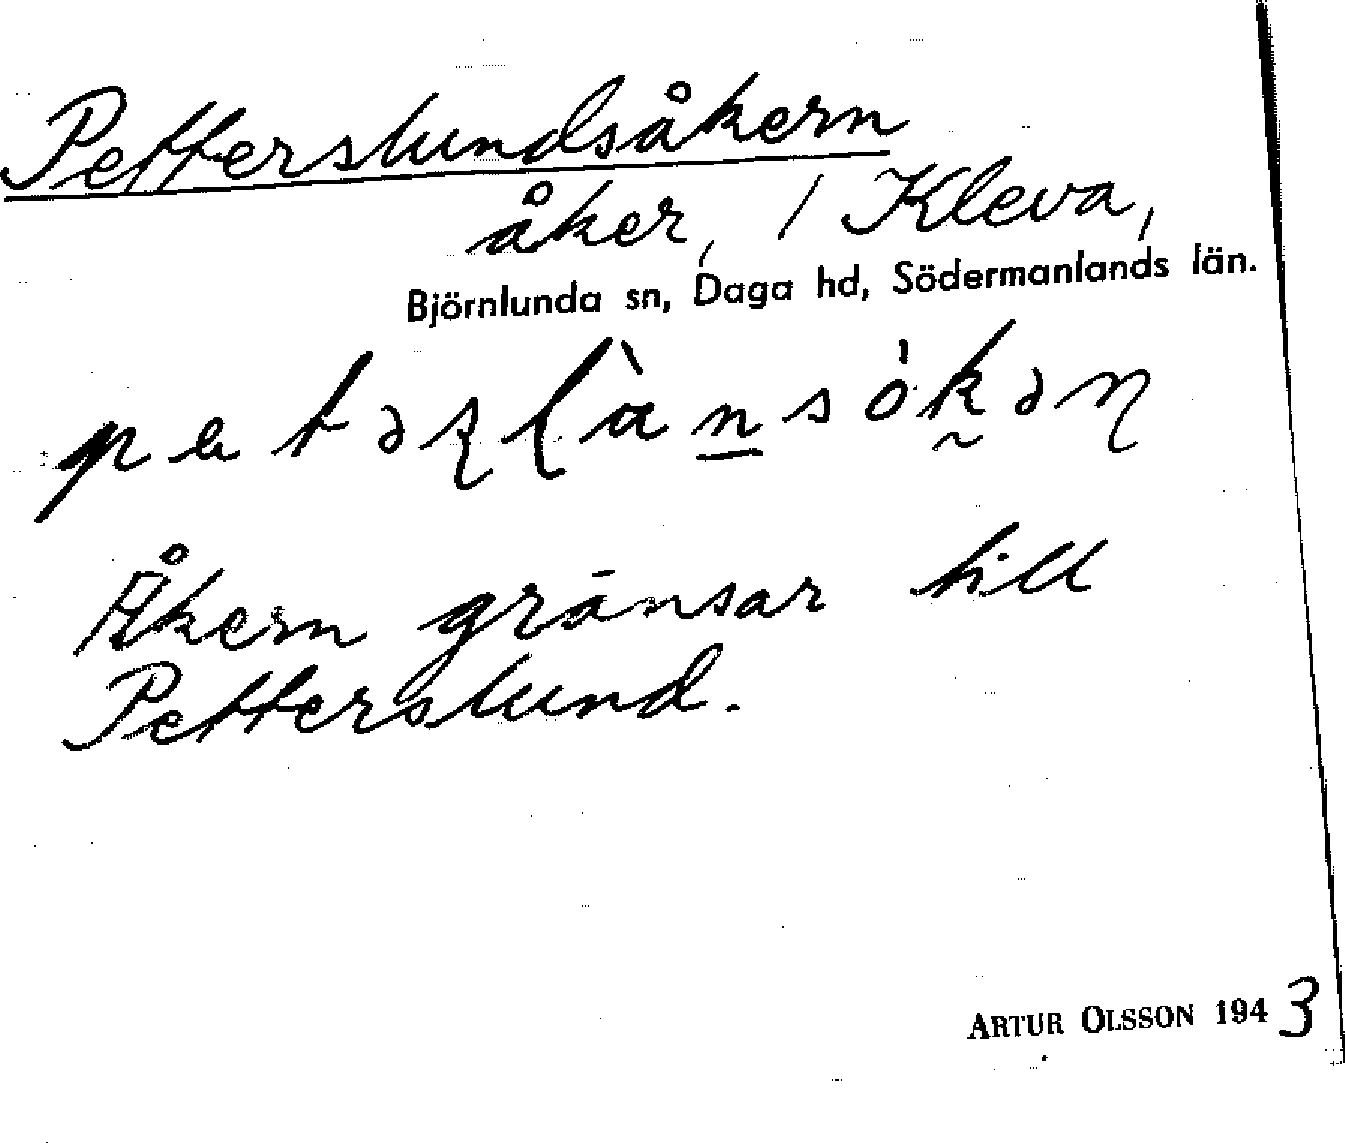 Petterslundsåkern
åker, 1 Kleva,
Björnlunda sn, Daga hd, Södermanlands län.
Åkern gränsar till
Petterslund.
ARTUR OLSSON 1943